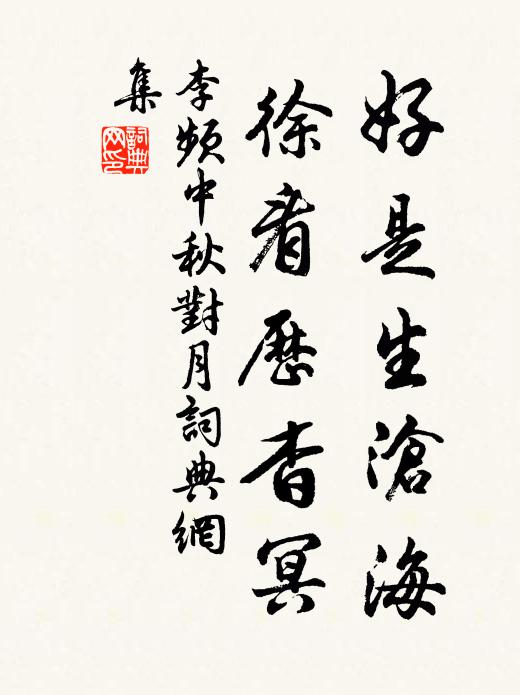 好是生滄海
徐看歷杳冥
李頻中秋對月詞典網
集
詞典
网印